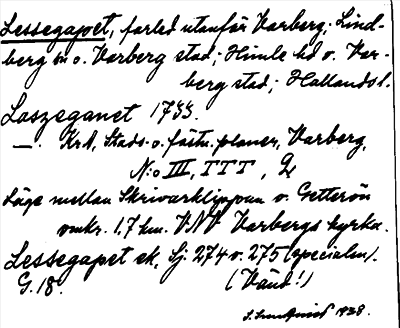 Lessegapet, farled utanför Varberg; Lind-
berg sn o. Varberg stad; Himle hd o. Var-
berg stad; Hallands l.
Laszeganet 1733.
—. KrA, Stads- o. fästn. planer, Varberg,
N:o III, TTT, 2
Läge mellan Skrivareklippan o. Getterön
omkr. 1,7 km. VNV Varbergs kyrka.
Lessegapet ek. Sj. 274 o. 275 (specialen).
G. 18. (Vänd!)
1938.